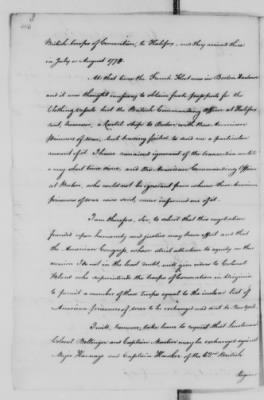 British troops of Convention, to Halifax, and they arrived there
in July or August 1778.
At that time the French Fleet was in Boston Harbour
and it was thought necessary to obtain fresh passports for the
Clothing Vessels but the British Commanding Officer at Halifax
sent, however, a Cartel Ship to Boston with those American
prisoners of war, but having failed to send me a particular
account of it I have remained ignorant of the transaction until
a very short time since, and the American Commanding Officer
at Boston, who could not be ignorant from whence these American
prisoners of war were sent, never informed me of it.
I am therefore, Sir, to solicit that this negotiation
founded upon humanity and justice may have effect and that
the American Congress whose strict attention to equity on this
occasion I do not in the least doubt, will give orders to Colonel
who superintends the troops of Convention in Virginia
to permit a number of those troops equal to the inclosed list of
American prisoners of war to be exchanged and sent to New York.
I must, however, take leave to request that Lieutenant
Colonel and Captain may be exchanged against
Major Harnage and Captain Hawker of the 62nd British